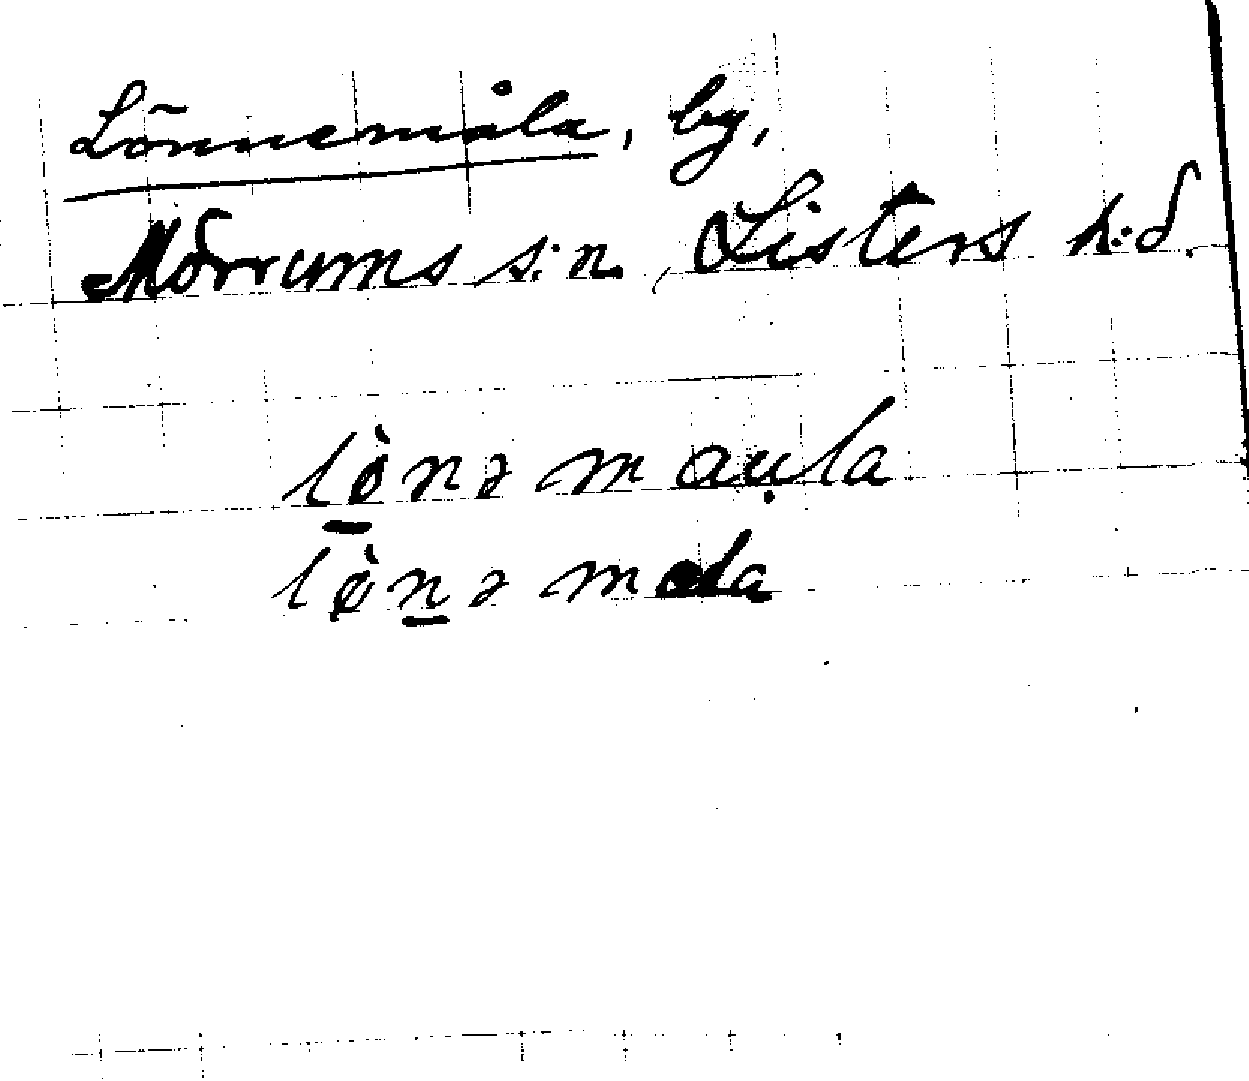 Lönnemåla, by,
Mörrums s:n, Listers h:d.
lø̀nə mau̯la
lø̀nə mola